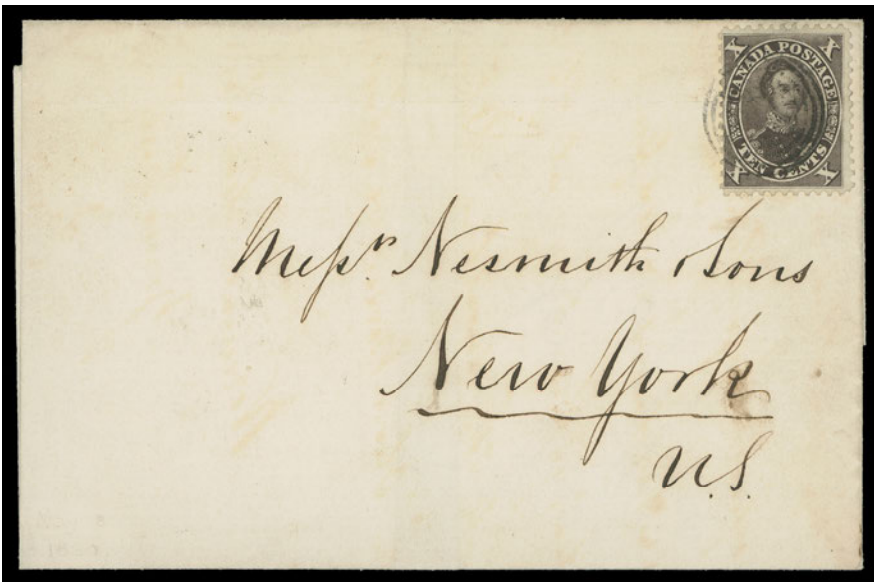 X CANADA POSTAGE X
X TEN CENTS X
Messrs Nesmith & Sons
New York
U.S.